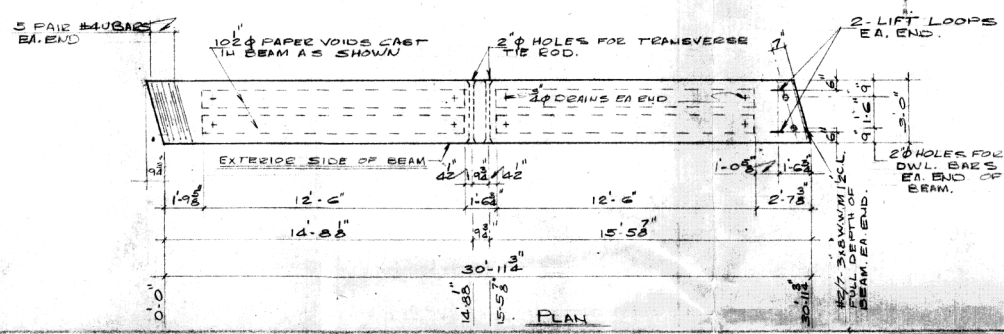 5 PAIR #4UBARS
EA. END
10½"φ PAPER VOIDS CAST
IN BEAM AS SHOWN
2"φ HOLES FOR TRANSVERSE
TIE ROD.
2-LIFT LOOPS
EA. END.
7"
¾"φ DRAINS EA END
6"
6"
9"
1'-6"
9"
3'-0"
EXTERIOR SIDE OF BEAM
4½"
9¾"
4½"
1'-0⅝"
1'-6¾"
2"φ HOLES FOR
DWL. BARS
EA. END OF
BEAM.
1'-9⅝"
12'-6"
1'-6¾"
12'-6"
2'-7⅜"
14'-8⅛"
9¾"
15'-5⅞"
30'-11¾"
0'-0"
14'-8⅛"
15'-5⅞"
FULL DEPTH OF
BEAM EA. END.
PLAN